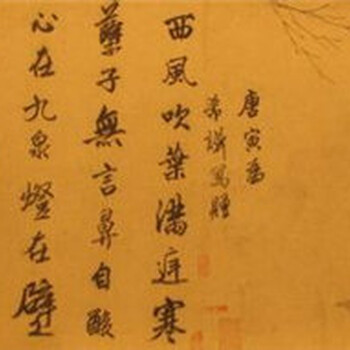 唐寅為
希謨寫贈
西風吹葉滿庭寒
孽子無言鼻自酸
心在九泉燈在壁